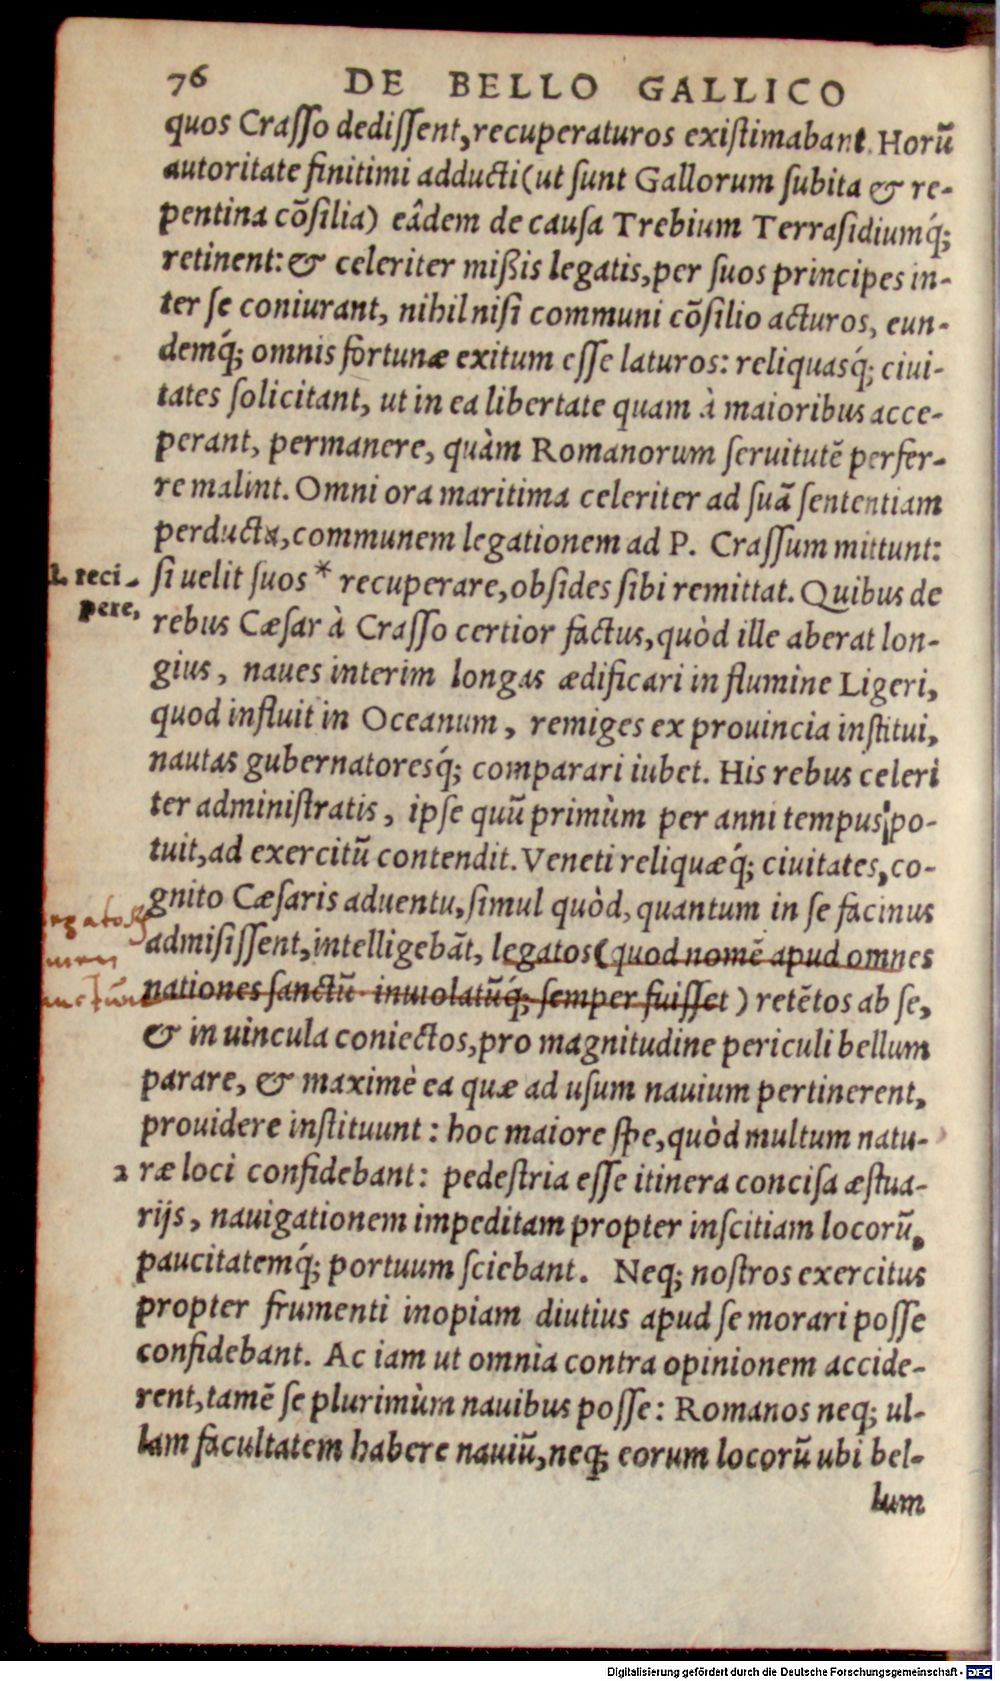 76 DE BELLO GALLICO
quos Craſſo dediſſent, recuperaturos exiſtimabant. Horũ
autoritate finitimi adducti (ut ſunt Gallorum ſubita & re-
pentina cõſilia) eâdem de cauſa Trebium Terraſidiumq́;
retinent: & celeriter mißis legatis, per ſuos principes in-
ter ſe coniurant, nihil niſi communi cõſilio acturos, eun-
demq́; omnis fortunæ exitum eſſe laturos: reliquasq́; ciui-
tates ſolicitant, ut in ea libertate quam à maioribus acce-
perant, permanere, quàm Romanorum ſeruitutẽ perfer-
re malint. Omni ora maritima celeriter ad ſuã ſententiam
perducta, communem legationem ad P. Craſſum mittunt:
l. reci-
pere,
ſi uelit ſuos * recuperare, obſides ſibi remittat. Quibus de
rebus Cæſar à Craſſo certior factus, quòd ille aberat lon-
gius, naues interim longas ædificari in flumine Ligeri,
quod influit in Oceanum, remiges ex prouincia inſtitui,
nautas gubernatoresq́; comparari iubet. His rebus celeri
ter adminiſtratis, ipſe quũ primùm per anni tempus po-
tuit, ad exercitũ contendit. Veneti reliquæq́; ciuitates, co-
gnito Cæſaris aduentu, ſimul quòd, quantum in ſe facinus
admiſiſſent, intelligebãt, legatos (quod nomẽ apud omnes
nationes ſanctũ inuiolatũq́; ſemper fuiſſet) retẽtos ab ſe,
& in uincula coniectos, pro magnitudine periculi bellum
parare, & maximè ea quæ ad uſum nauium pertinerent,
prouidere inſtituunt: hoc maiore ſpe, quòd multum natu-
2 ræ loci confidebant: pedeſtria eſſe itinera conciſa æſtua-
rijs, nauigationem impeditam propter inſcitiam locorũ,
paucitatemq́; portuum ſciebant. Neq; noſtros exercitus
propter frumenti inopiam diutius apud ſe morari poſſe
confidebant. Ac iam ut omnia contra opinionem accide-
rent, tamẽ ſe plurimùm nauibus poſſe: Romanos neq; ul-
lam facultatem habere nauiũ, neq; eorum locorũ ubi bel-
lum
Digitalisierung gefördert durch die Deutsche Forschungsgemeinschaft - DFG